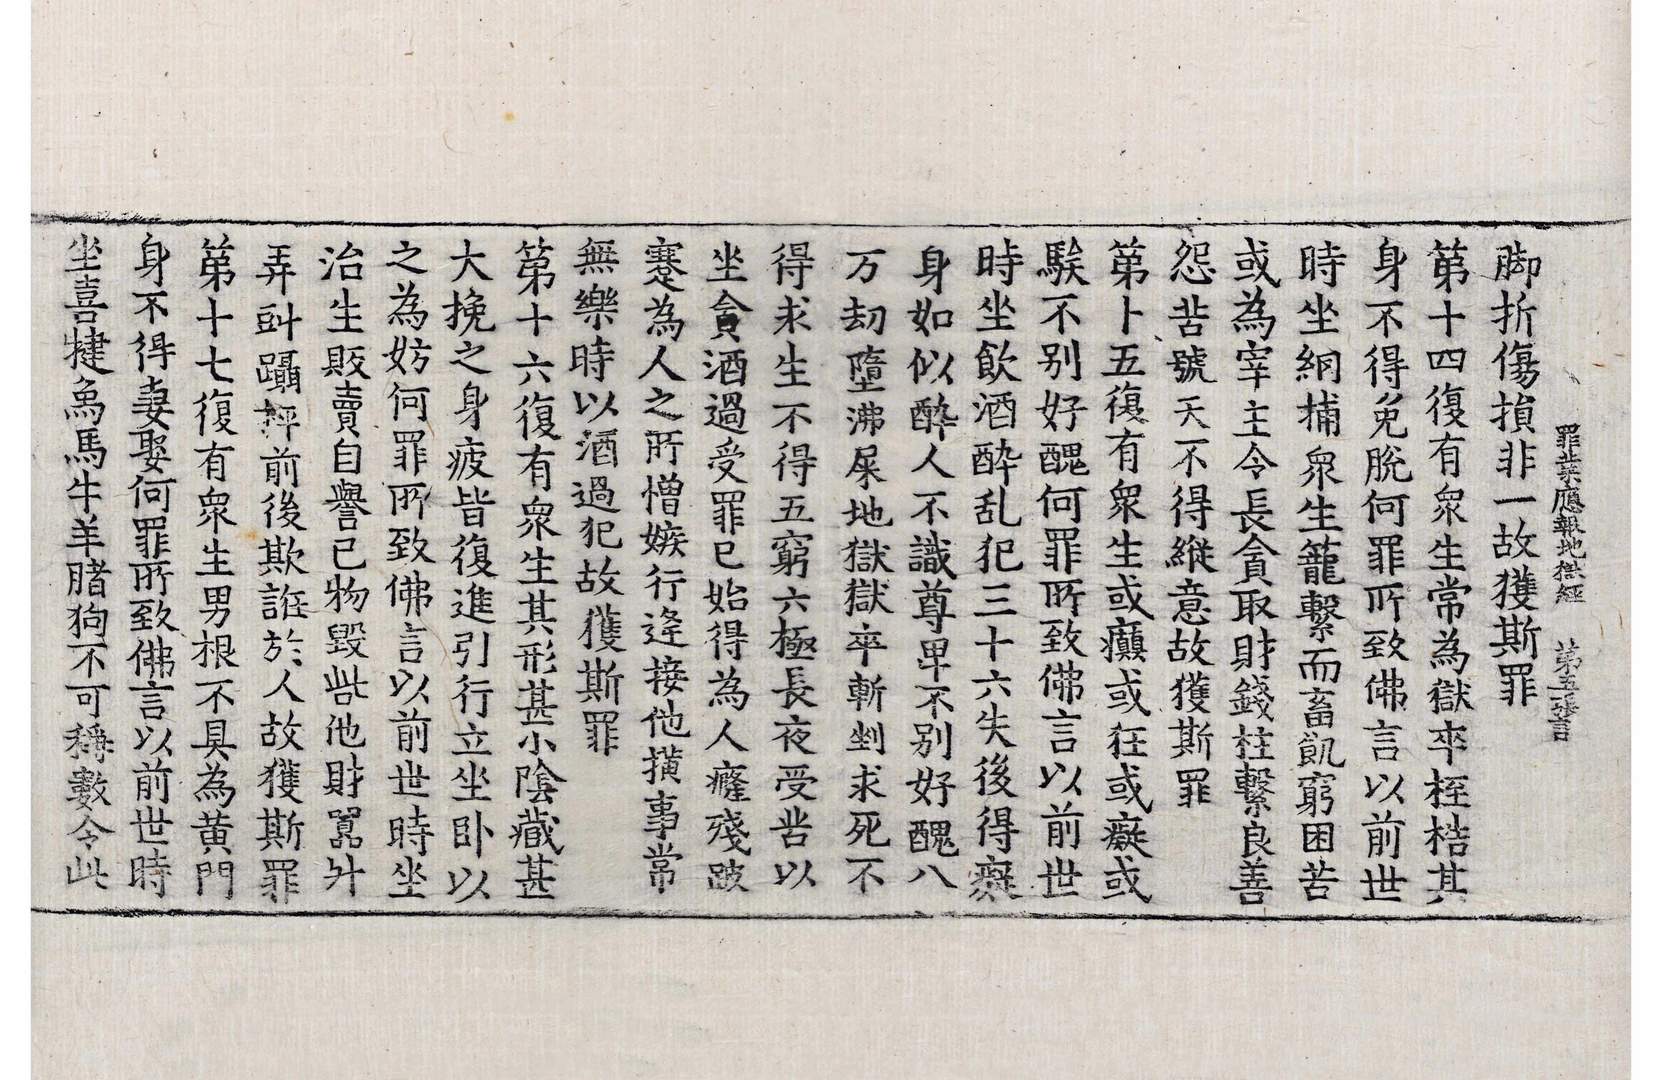 罪業應報地獄經 第五張 言
脚折傷損非一故獲斯罪
第十四復有衆生常為獄卒桎梏其
身不得免脫何罪所致佛言以前世
時坐網捕衆生籠繫而畜飢窮困苦
或為宰主令長貪取財錢枉繫良善
怨苦號天不得縱意故獲斯罪
第十五復有衆生或癲或狂或癡或
騃不別好醜何罪所致佛言以前世
時坐飲酒醉乱犯三十六失後得癡
身如似醉人不識尊卑不別好醜八
万劫墮沸屎地獄獄卒斬剉求死不
得求生不得五窮六極長夜受苦以
坐貪酒過受罪已始得為人癃殘跛
蹇為人之所憎嫉行逢接他橫事常
無樂時以酒過犯故獲斯罪
第十六復有衆生其形甚小陰藏甚
大挽之身疲皆復進引行立坐卧以
之為妨何罪所致佛言以前世時坐
治生販賣自譽己物毀呰他財嚚升
弄㪷躡秤前後欺誑於人故獲斯罪
第十七復有衆生男根不具為黃門
身不得妻娶何罪所致佛言以前世時
坐喜犍象馬牛羊猪狗不可稱數令此